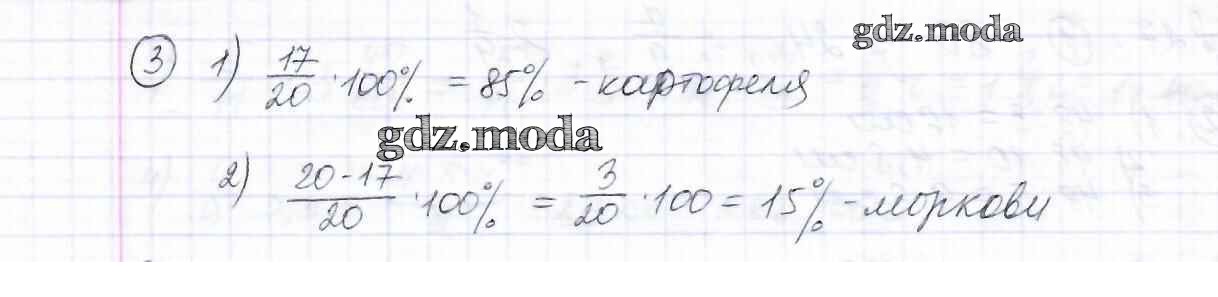 gdz.moda
③ 1) 17/20 · 100% = 85% - картофеля
gdz.moda
2) 20-17/20 · 100% = 3/20 · 100 = 15% - моркови